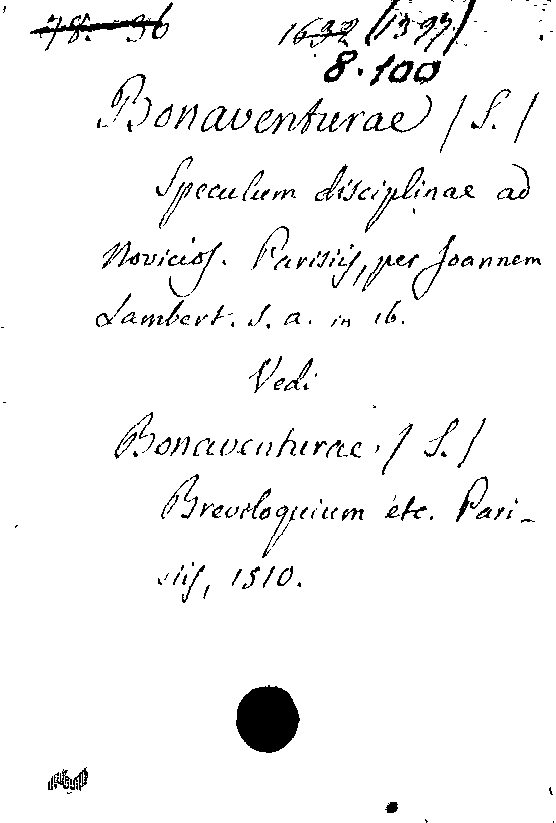 78. 36 1632 (1397)
8.100
Bonaventurae (S.)
Speculum disciplinae ad
Novicios. Parisiis, per Joannem
Lambert. s. a. in 16.
Vedi
Bonaventurae. (S.)
Breviloquium etc. Pari-
siis, 1510.